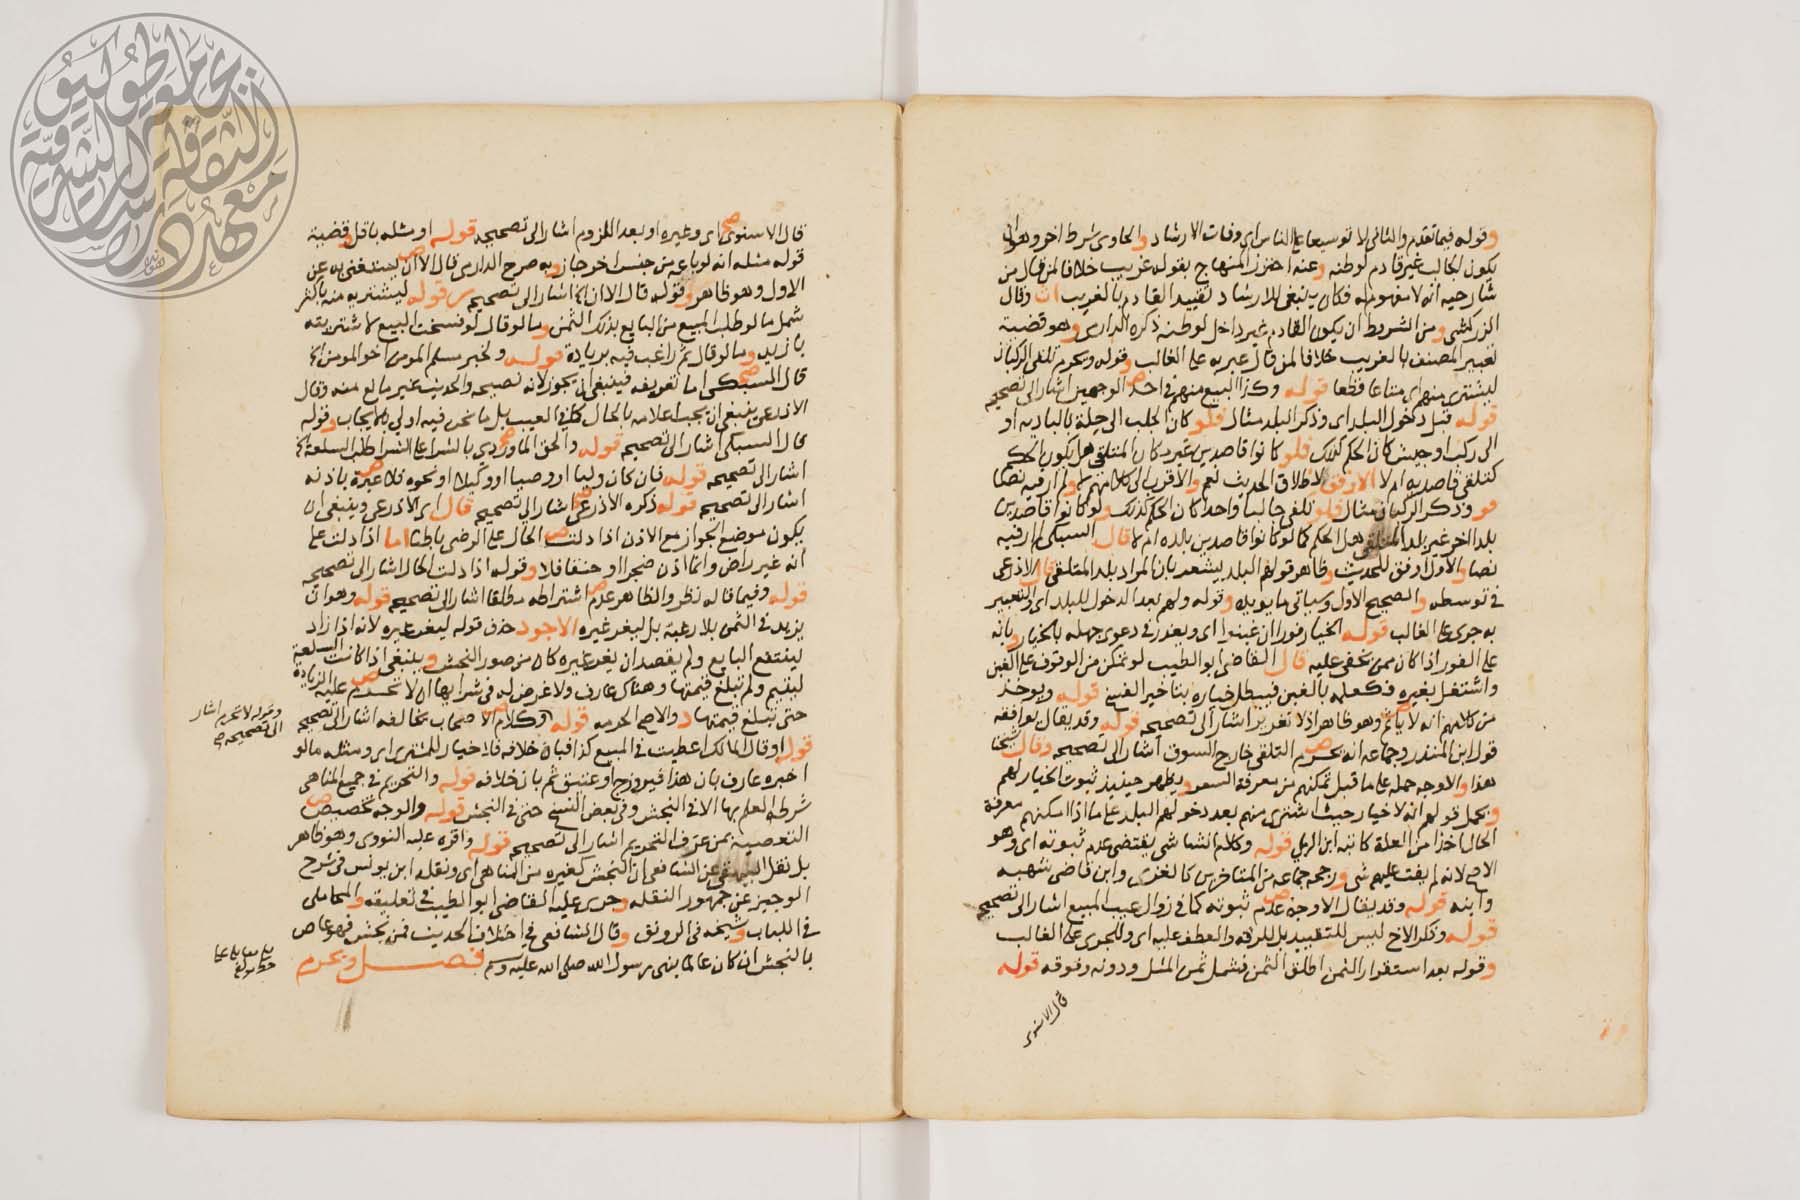 وقوله فيما تقدم والثاني لا توسيعا على الناس اي وفات الارشاد والحاوي شرط اخر وهو ان
يكون الجالب غير قادم لوطنه وعنه احترز المنهاج بقوله غريب خلافا لمن قال من
شارحيه انه لا مفهوم له فكان ينبغي للارشاد تقييد القادم بالغريب وقال
الزركشي ومن الشروط ان يكون القادم غير داخل لوطنه ذكره الدارمي وهو قضية
تعبير المصنف بالغريب خلافا لمن قال عبر به على الغالب وقوله ويحرم تلقي الركبان
ليشتري منهم اي متاعا قطعا قوله وكذا البيع منهم في احد الوجهين اشار الى تصحيحه
قوله قبل دخول البلد اي وذكر البلد مثال فلو كان الجلب الى حلة بالبادية او
الى ركب او جيش كان الحكم كذلك فلو كانوا قاصدين غير مكان المتلقي هل يكون الحكم
كتلقي قاصديه ام لا الاوفق لاطلاق الحديث نعم والاقرب الى كلامهم لا ولم ار فيه نصا
وذكر الركبان مثال فلو تلقى جالبا واحدا كان الحكم كذلك ولو كانوا قاصدين
بلدا اخر غير بلد المتلقي هل الحكم كما لو كانوا قاصدين بلده ام لا قال السبكي لم ار فيه
نصا والاول اوفق للحديث وظاهر قولهم البلد يشعر بان المراد بلد المتلقي قال الاذرعي
في توسطه والصحيح الاول وسياتي ما يؤيده وقوله ولهم بعد الدخول للبلد اي والتعبير
به جرى على الغالب قوله الخيار فورا ان غبنوا اي ويعذر في دعوى جهله بالخيار وبانه
على الفور اذا كان ممن يخفى عليه قال القاضي ابو الطيب لو تمكن من الوقوف على الغبن
واشتغل بغيره فكعلمه بالغبن فيبطل خياره بتاخير الفسخ قوله ويوخذ
من كلامهم انه لا ياثم وهو ظاهر اذ لا تغرير اشار الى تصحيحه قوله وقد يقال يوافقه
قول ابن المنذر وجماعة انه يحرم التلقي خارج السوق اشار الى تصحيحه وقال شيخنا
هذا والاوجه حمله على ما قبل تمكنهم من معرفة السعر ويظهر حينئذ ثبوت الخيار لهم
ويحمل قولهم انه لا خيار حيث اشترى منهم بعد دخولهم البلد على ما اذا امكنهم معرفة
الحال اخذا من العلة كاتبه ابن الرملي قوله وكلام الشاشي يقتضي عدم ثبوته اي وهو
الاصح لانه لم يفت عليهم شي ورجحه جماعة من المتاخرين كالغزي وابن قاضي شهبه
وابنه قوله وقد يقال الاوجه عدم ثبوته كما في زوال عيب المبيع اشار الى تصحيحه
قوله وذكر الاخ ليس للتقييد بل للرقة والعطف عليه اي وللجري على الغالب
وقوله بعد استقرار الثمن اطلق الثمن فشمل ثمن المثل ودونه وفوقه قوله
قال الاسنوي
قال الاسنوي اي وغيره او بعد اللزوم اشار الى تصحيحه قوله او مثله باقل وقضية
قوله مثله انه لو باعه من جنس اخر جاز وبه صرح الدارمي قال الا ان يستغنى به عن
الاول وهو ظاهر وقوله قال الاان اشار الى تصحيحه قوله ليشتريه منه باكثر
شمل ما لو طلب المبيع من البايع بذلك الثمن وما لو قال لو فسخت البيع لاشتريته
بازيد وما لو قال ثم راغب فيه بزيادة قوله ولخبر مسلم المومن اخو المومن
قال السبكي اما تعريفه فينبغي ان يجوز لانه نصيحة والحديث غير مانع منه وقال
الاذرعي ينبغي ان يجب اعلامه بالحال كما في العيب بل ما نحن فيه اولى بالايجاب وقوله
قال السبكي اشار الى تصحيحه قوله والحق الماوردي بالشراء على الشرا طلب السلعة
اشار الى تصحيحه قوله فان كان وليا او وصيا او وكيلا او نحوه فلا عبرة باذنه
اشار الى تصحيحه قوله ذكره الاذرعي اشار الى تصحيحه قال اي الاذرعي وينبغي ان
يكون موضع الجواز مع الاذن اذا دلت الحال على الرضى باطنا اما اذا دلت على
انه غير راض وانما اذن ضجرا او حنقا فلا وقوله اذا دلت الحال اشار الى تصحيحه
قوله وفيما قاله نظر والظاهر عدم اشتراطه مطلقا اشار الى تصحيحه قوله وهو ان
يزيد في الثمن بلا رغبة بل ليغر غيره الاجود حذف قوله ليغر غيره لانه اذا زاد
لينتفع البايع ولم يقصد ان يغر غيره كان من صور النجش وينبغي اذا كانت السلعة
ليتيم ولم تبلغ قيمتها وهناك عارف ولا غرض له في شرايها ان لا تحرم عليه الزيادة
حتى تبلغ قيمتها والاصح الحرمه قوله وكلام الاصحاب يخالفه اشار الى تصحيحه
قوله او قال المالك اعطيت في المبيع كذا فبان خلافه فلا خيار للمشتري اي ومثله ما لو
اخبره عارف بان هذا فيروزج او عقيق ثم بان خلافه قوله والتحريم في جميع المناهي
شرطه العلم بها الا في النجش وفي بعض النسخ حتى في النجش قوله والوجه تخصيص
التعصية بمن عرف التحريم اشار الى تصحيحه قوله واقره عليه النووي وهو ظاهر
بل نقل البيهقي عن الشافعي ان النجش كغيره من المناهي اي ونقله ابن يونس في شرح
الوجيز عن جمهور النقله وجرى عليه القاضي ابو الطيب في تعليقه والمحاملي
في اللباب وشيخه في الرونق وقال الشافعي في اختلاف الحديث فمن نجش فهو عاص
بالنجش ان كان عالما بنهي رسول الله صلى الله عليه وسلم فصل ويحرم
وقوله لا تحرم اشار
الى تصحيحه
جامعة طوكيو
معهد الدراسات الثقافة الشرقية